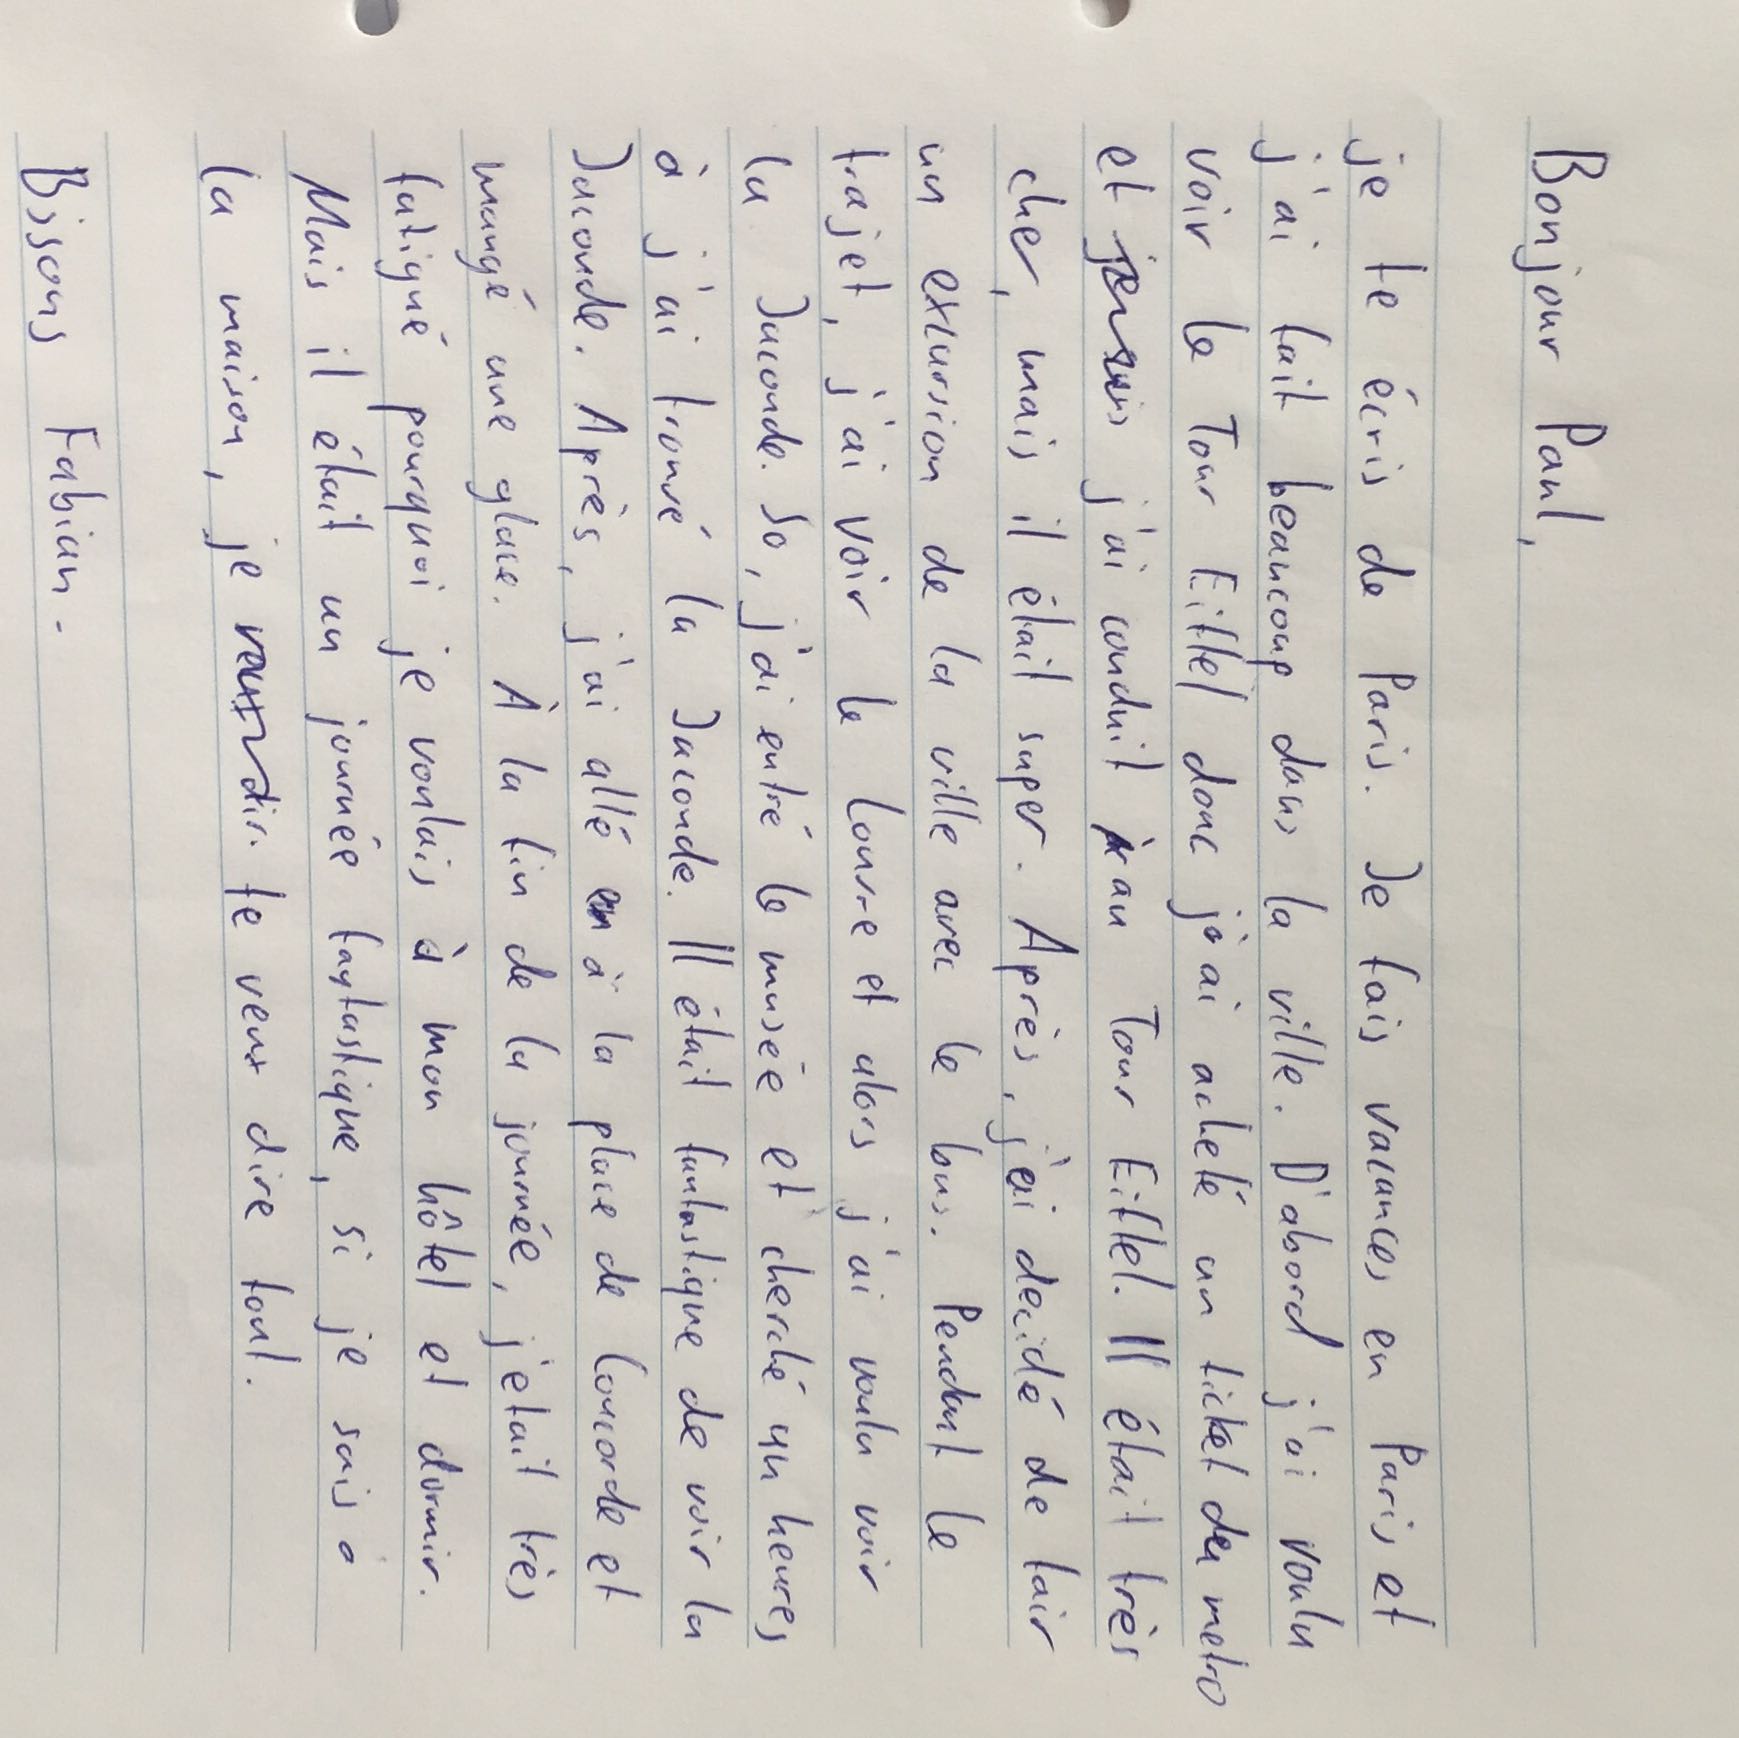 Bonjour Paul,
je te écris de Paris. Je fais vacances en Paris et
j'ai fait beaucoup dans la ville. D'abord j'ai voulu
voir le Tour Eiffel donc j'ai acheté un ticket du metro
et j'ai conduit au Tour Eiffel. Il était très
cher, mais il était super. Après, j'ai decidé de fair
un excursion de la ville avec le bus. Pendant le
trajet, j'ai voir le Louvre et alors j'ai voulu voir
la Jaconde. So, j'ai entré le musée et cherché un heures
à j'ai trouvé la Jaconde. Il était fantastique de voir la
Jaconde. Après, j'ai allé à la place de Concorde et
mangé une glace. À la fin de la journée, j'etait très
fatigué pourquoi je voulais à mon hôtel et dormir.
Mais il était un journée fantastique, si je suis a
la maison, je te veux dire tout.
Bisous Fabian.